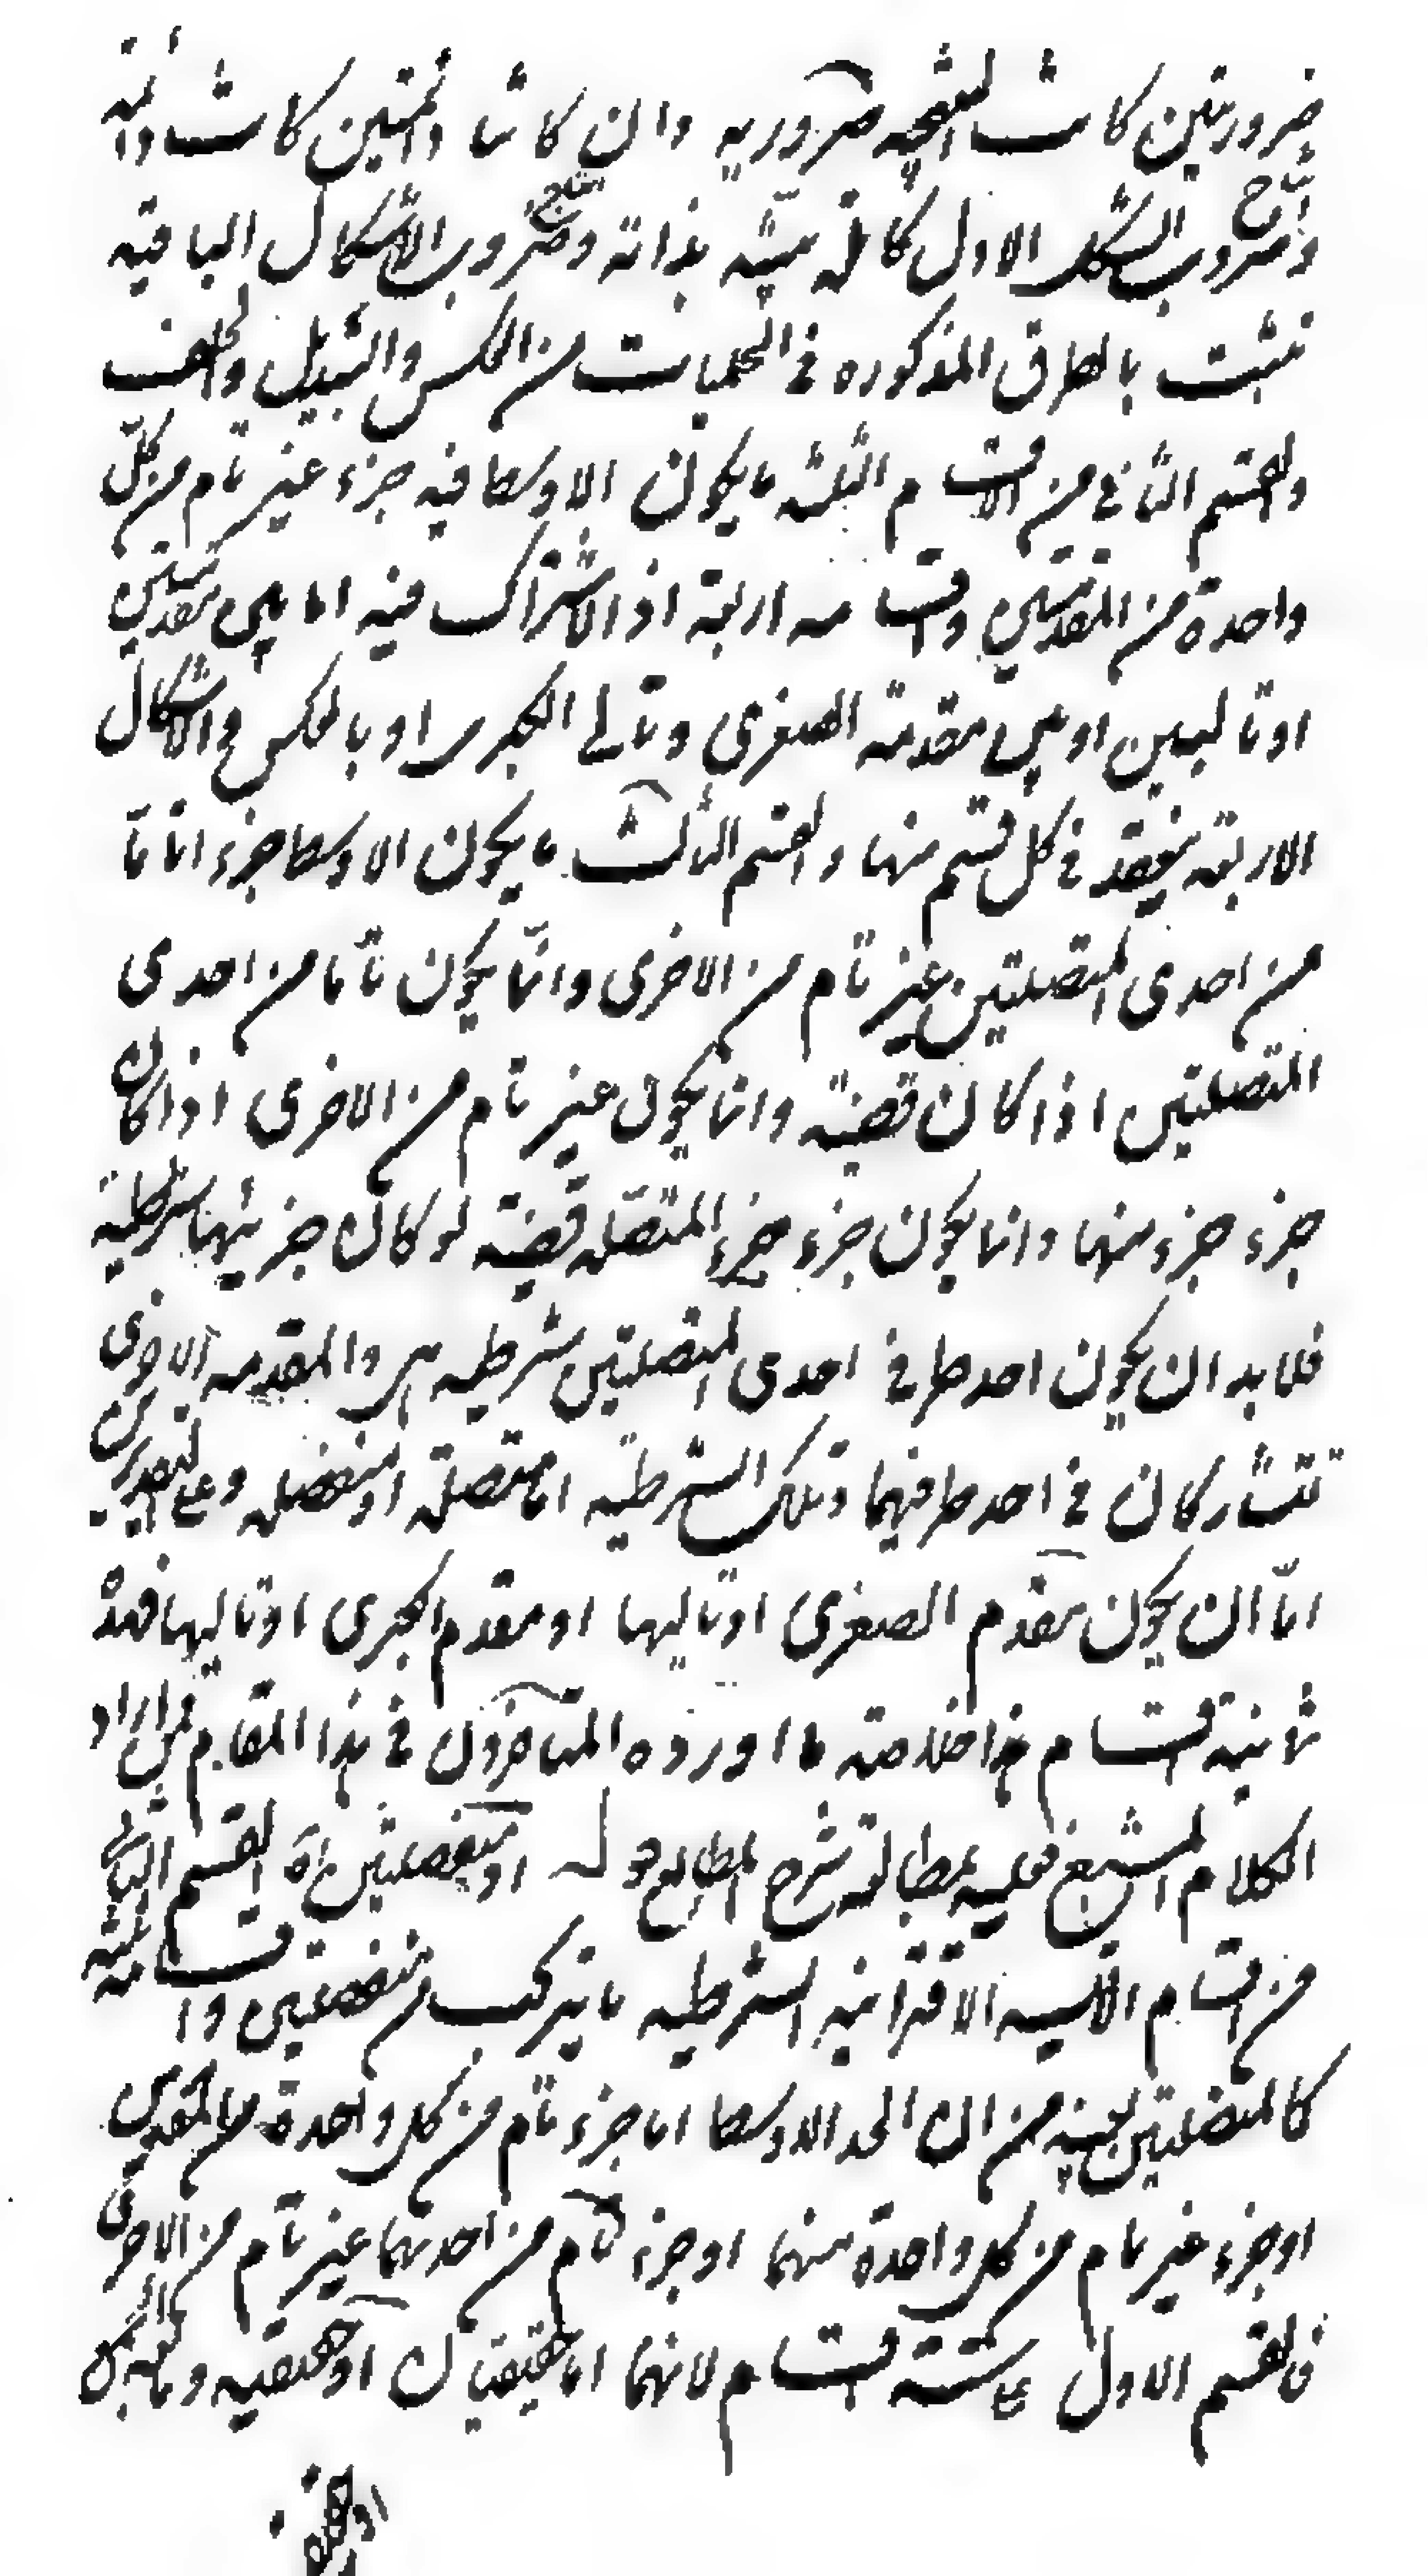 ضروريتين كانت النتيجة ضرورية وان كانتا دائمتين كانت دائمة
وضروب الشكل الاول كاملة بينة بذاته ونتايج ضروب الاشكال الباقية
تثبت بالطرق المذكوره في الحمليات من العكس والتبديل والخلف
والقسم الثاني من الاقسام الثلثة ما يكون الاوسط فيه جزء غير تام من كل
واحدة من المقدمتين واقسامه اربعة اذ الاشتراك فيه اما بين مقدمتين
او تاليين او بين مقدمة الصغرى وتالى الكبرى او بالعكس والاشكال
الاربعة ينعقد في كل قسم منها والقسم الثالث ما يكون الاوسط جزء اتاما
من احدى المتصلتين غير تام من الاخرى وانما يكون تاما من احدى
المتصلتين اذا كان قضية وانما يكون غير تام من الاخرى اذا كان
جزء جزء منها وانما يكون جزء جزء المتصلة قضية لو كان جزئيها شرطية
فلا بد ان يكون احد طرفي احدى المتصلتين شرطية هي والمقدمة الاخرى
تتشاركان في احد طرفيهما وتلك الشرطية اما متصلة او منفصلة وعلى التقديرين
اما ان يكون مقدم الصغرى او تاليها او مقدم الكبرى او تاليها فهذه
ثمانية اقسام هذا خلاصة ما اورده المتأخرون في هذا المقام فمن اراد
الكلام المشبع فعليه بمطالعة شرح المطالع قوله او منفصلتين اه القسم الثاني
من اقسام الاقيسة الاقترانية الشرطية ما يتركب من منفصلتين واقسامه ثلثة
كالمتصلتين بعينه من ان الحد الاوسط اما جزء تام من كل واحدة من المقدمتين
او جزء غير تام من كل واحدة منهما او جزء تام من احدهما غير تام من الاخرى
فالقسم الاول على ستة اقسام لانهما اما حقيقيتان او حقيقية ومانعة الجمع
او حقيقية